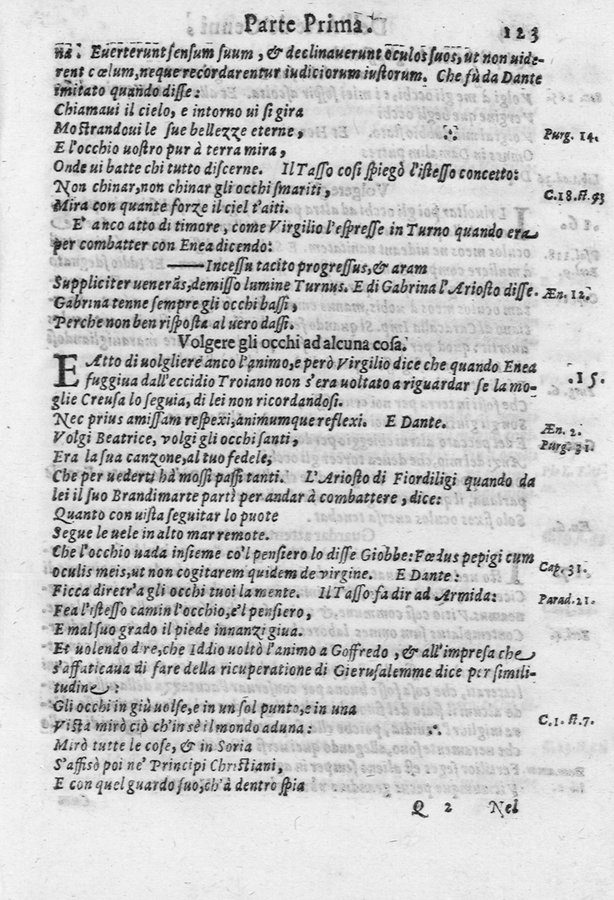 Parte Prima. 123
na: Euerterunt sensum suum, & declinauerunt oculos suos, ut non uide-
rent cœlum, neque recordarentur iudiciorum iustorum. Che fù da Dante
imitato quando disse:
Chiamaui il cielo, e intorno ui si gira
Mostrandoui le sue bellezze eterne, Purg. 14.
E l'occhio uostro pur à terra mira,
Onde ui batte chi tutto discerne. Il Tasso cosi spiegò l'istesso concetto:
Non chinar, non chinar gli occhi smariti, C. 18. st. 93
Mira con quante forze il ciel t'aiti.
E' anco atto di timore, come Virgilio l'espresse in Turno quando era
per combatter con Enea dicendo:
——Incessu tacito progressus, & aram
Suppliciter venerãs, demisso lumine Turnus. E di Gabrina l'Ariosto disse. Æn. 12.
Gabrina tenne sempre gli occhi bassi,
Perche non ben risposta al uero dassi.
Volgere gli occhi ad alcuna cosa.
E Atto di uolgliere anco l'animo, e però Virgilio dice che quando Enea .15.
fuggiua dall'eccidio Troiano non s'era uoltato a riguardar se la mo-
glie Creusa lo seguia, di lei non ricordandosi.
Nec prius amissam respexi, animumque reflexi. E Dante. Æn. 2.
Volgi Beatrice, volgi gli occhi santi, Purg. 31.
Era la sua canzone, al tuo fedele,
Che per uederti hà mossi passi tanti. L'Ariosto di Fiordiligi quando da
lei il suo Brandimarte partì per andar à combattere, dice:
Quanto con uista seguitar lo puote
Segue le uele in alto mar remote.
Che l'occhio uada insieme co'l pensiero lo disse Giobbe: Fœdus pepigi cum
oculis meis, ut non cogitarem quidem de virgine. E Dante: Cap. 31.
Ficca diretr'a gli occhi tuoi la mente. Il Tasso fa dir ad Armida: Parad. 21.
Fea l'istesso camin l'occhio, e'l pensiero,
E mal suo grado il piede innanzi giua.
Et uolendo dire, che Iddio uoltò l'animo a Goffredo, & all'impresa che
s'affaticaua di fare della ricuperatione di Gierusalemme dice per simili-
tudine:
Gli occhi in giù uolse, e in un sol punto, e in una
Vista mirò ciò ch'in sè il mondo aduna: C. 1. st. 7.
Mirò tutte le cose, & in Soria
S'affisò poi ne' Principi Christiani,
E con quel guardo suo, ch'à dentro spia
Q 2 Nel